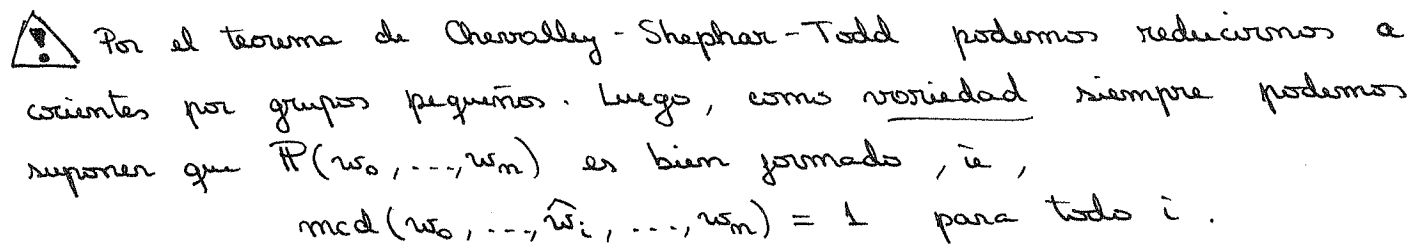 Por el teorema de Chevalley-Shephar-Todd podemos reducirnos a
cocientes por grupos pequeños. Luego, como variedad siempre podemos
suponer que ℙ(w₀,...,wₙ) es bien formado, ie,
mcd(w₀,...,ŵᵢ,...,wₙ) = 1 para todo i.